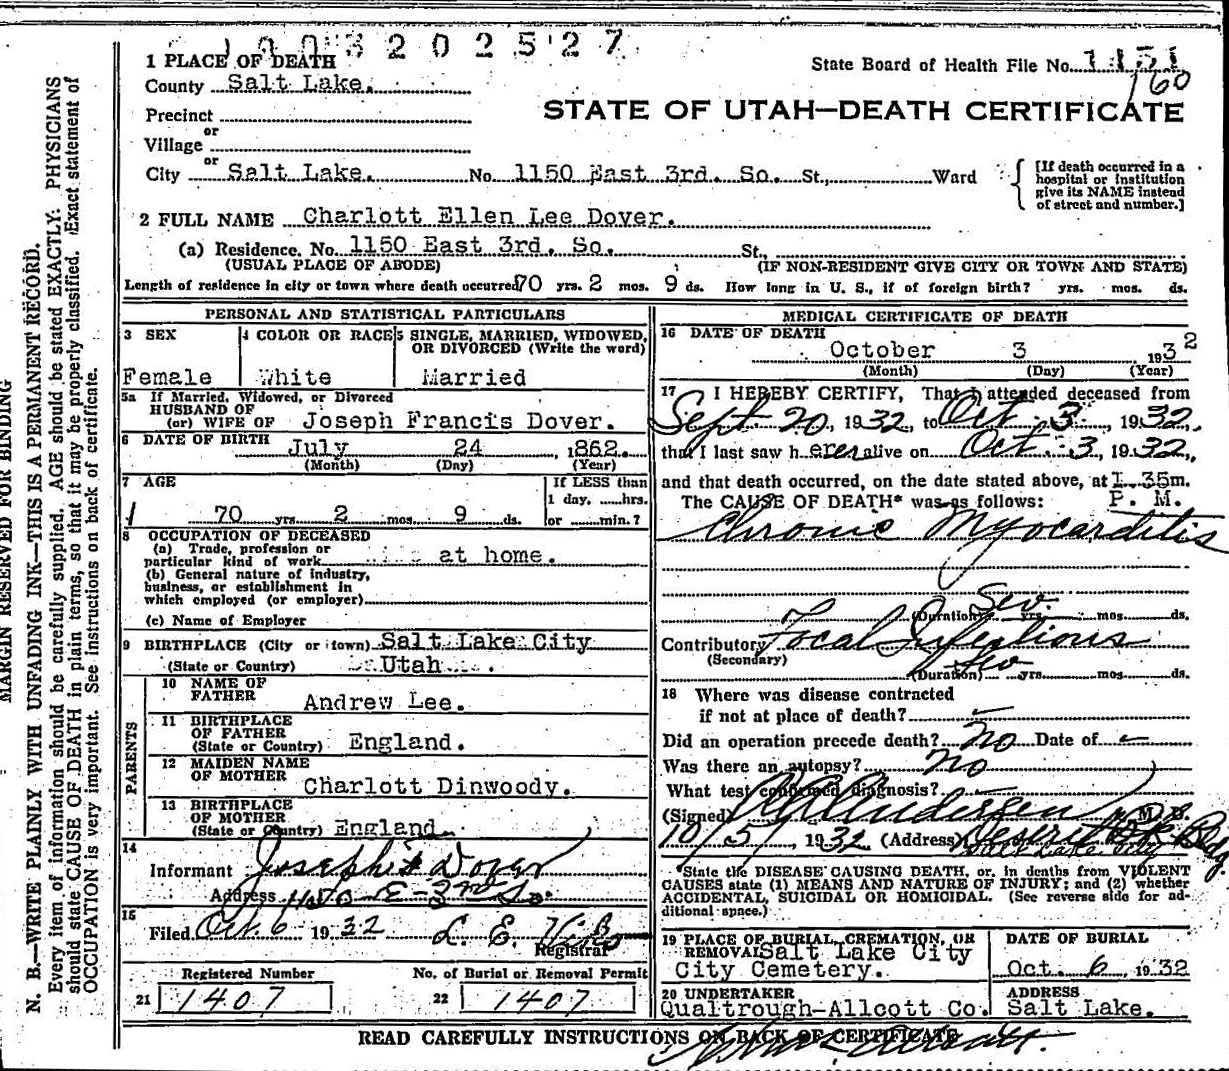 1003202527
1 PLACE OF DEATH
State Board of Health File No. 1151
160
County Salt Lake.
STATE OF UTAH—DEATH CERTIFICATE
Precinct
or
Village
or
City Salt Lake. No. 1150 East 3rd. So. St., Ward
[If death occurred in a hospital or institution give its NAME instead of street and number.]
2 FULL NAME Charlott Ellen Lee Dover.
(a) Residence. No. 1150 East 3rd. So. St.,
(USUAL PLACE OF ABODE) (IF NON-RESIDENT GIVE CITY OR TOWN AND STATE)
Length of residence in city or town where death occurred 70 yrs. 2 mos. 9 ds. How long in U. S., if of foreign birth? yrs. mos. ds.
PERSONAL AND STATISTICAL PARTICULARS
3 SEX 4 COLOR OR RACE 5 SINGLE, MARRIED, WIDOWED,
OR DIVORCED (Write the word)
Female White Married
5a If Married, Widowed, or Divorced
HUSBAND OF
(or) WIFE OF Joseph Francis Dover.
6 DATE OF BIRTH July 24, 1862.
(Month) (Day) (Year)
7 AGE If LESS than
1 day, ......hrs.
70 yrs. 2 mos. 9 ds. or ......min.?
8 OCCUPATION OF DECEASED
(a) Trade, profession or
particular kind of work at home.
(b) General nature of industry,
business, or establishment in
which employed (or employer)
(c) Name of Employer
9 BIRTHPLACE (City or town) Salt Lake City
(State or Country) Utah.
PARENTS
10 NAME OF
FATHER Andrew Lee.
11 BIRTHPLACE
OF FATHER
(State or Country) England.
12 MAIDEN NAME
OF MOTHER Charlott Dinwoody.
13 BIRTHPLACE
OF MOTHER
(State or Country) England
14
Informant Joseph F Dover
Address 1150 E-3rd So.
15
Filed Oct. 6 1932 L. E.
Registrar
Registered Number No. of Burial or Removal Permit
21 1407 22 1407
MEDICAL CERTIFICATE OF DEATH
16 DATE OF DEATH
October 3 1932
(Month) (Day) (Year)
17 I HEREBY CERTIFY, That I attended deceased from
Sept 20, 1932, to Oct. 3, 1932,
that I last saw h er alive on Oct. 3, 1932,
and that death occurred, on the date stated above, at 1.35m.
The CAUSE OF DEATH* was as follows: P. M.
Chronic Myocarditis
(Duration) Sev. yrs. mos. ds.
Contributory Focal Infections
(Secondary)
(Duration) Sev yrs. mos. ds.
18 Where was disease contracted
if not at place of death? -
Did an operation precede death? No Date of -
Was there an autopsy? No
What test confirmed diagnosis? -
(Signed) Andersen, M. D.
10/5, 1932 (Address) Deseret Bk Bldg.
Salt Lake City
*State the DISEASE CAUSING DEATH, or, in deaths from VIOLENT
CAUSES state (1) MEANS AND NATURE OF INJURY; and (2) whether
ACCIDENTAL, SUICIDAL OR HOMICIDAL. (See reverse side for ad-
ditional space.)
19 PLACE OF BURIAL, CREMATION, OR DATE OF BURIAL
REMOVAL Salt Lake City
City Cemetery. Oct. 6, 1932
20 UNDERTAKER ADDRESS
Qualtrough-Allcott Co. Salt Lake.
READ CAREFULLY INSTRUCTIONS ON BACK OF CERTIFICATE
MARGIN RESERVED FOR BINDING
N. B.—WRITE PLAINLY WITH UNFADING INK—THIS IS A PERMANENT RECORD.
Every item of information should be carefully supplied. AGE should be stated EXACTLY. PHYSICIANS
should state CAUSE OF DEATH in plain terms, so that it may be properly classified. Exact statement of
OCCUPATION is very important. See instructions on back of certificate.